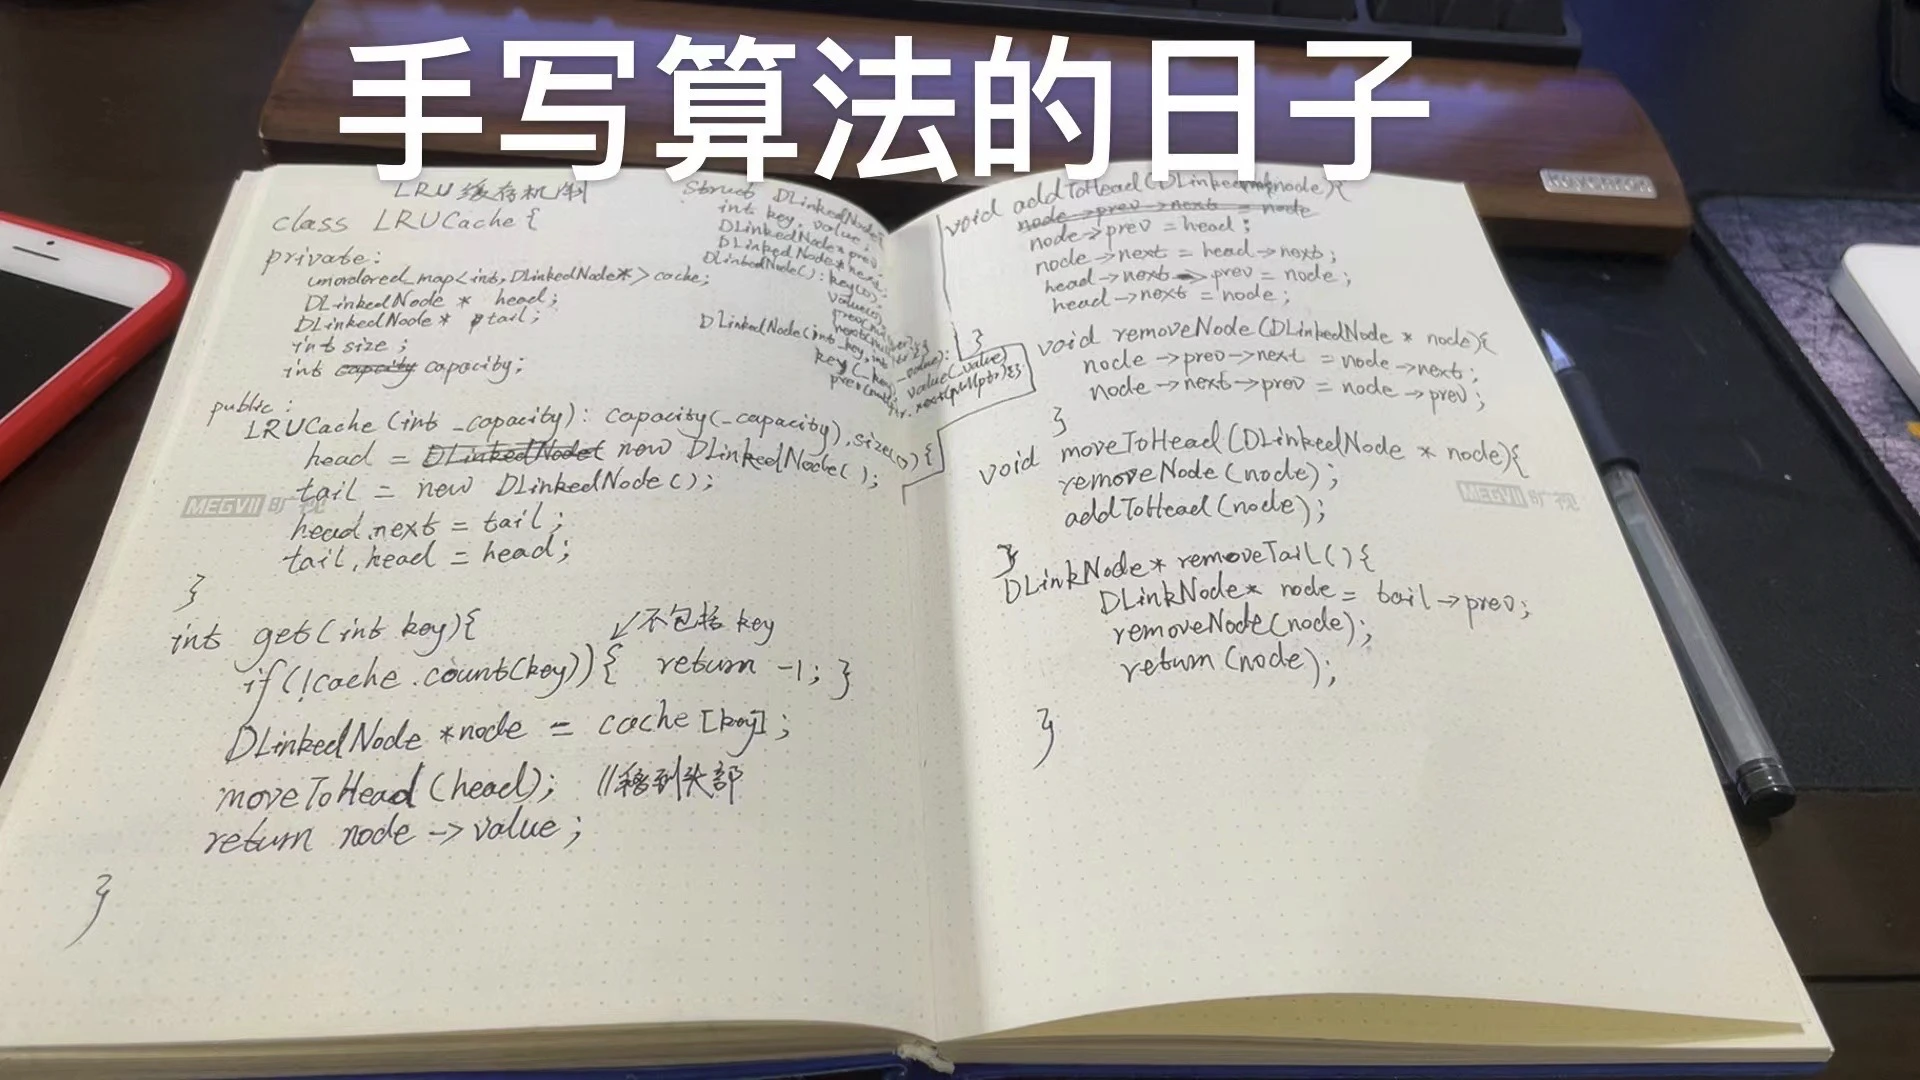 手写算法的日子
LRU缓存机制
class LRUCache{
private:
unordered_map<int, DLinkedNode*> cache;
DLinkedNode * head;
DLinkedNode * tail;
int size;
int capacity capacity;
public:
LRUCache (int _capacity): capacity(_capacity), size(0){
head = DLinkedNode new DLinkedNode();
tail = new DLinkedNode();
head.next = tail;
tail.head = head;
}
int get(int key){
↙不包括 key
if(!cache.count(key)){ return -1; }
DLinkedNode *node = cache[key];
moveToHead(head); //移到头部
return node->value;
}
Struct DLinkedNode{
int key, value;
DLinkedNode* prev;
DLinkedNode* next;
DLinkedNode(): key(0),
value(0),
DLinkedNode(int _key, int _value):
key(_key), value(_value)
next(nullptr){}
void addToHead(DLinkedNode* node){
node->prev->next = node
node->prev = head;
node->next = head->next;
head->next->prev = node;
head->next = node;
}
void removeNode(DLinkedNode * node){
node->prev->next = node->next;
node->next->prev = node->prev;
}
void moveToHead(DLinkedNode * node){
removeNode(node);
addToHead(node);
}
DLinkNode* removeTail(){
DLinkNode* node = tail->prev;
removeNode(node);
return(node);
}
MEGVII 旷视
MEGVII 旷视